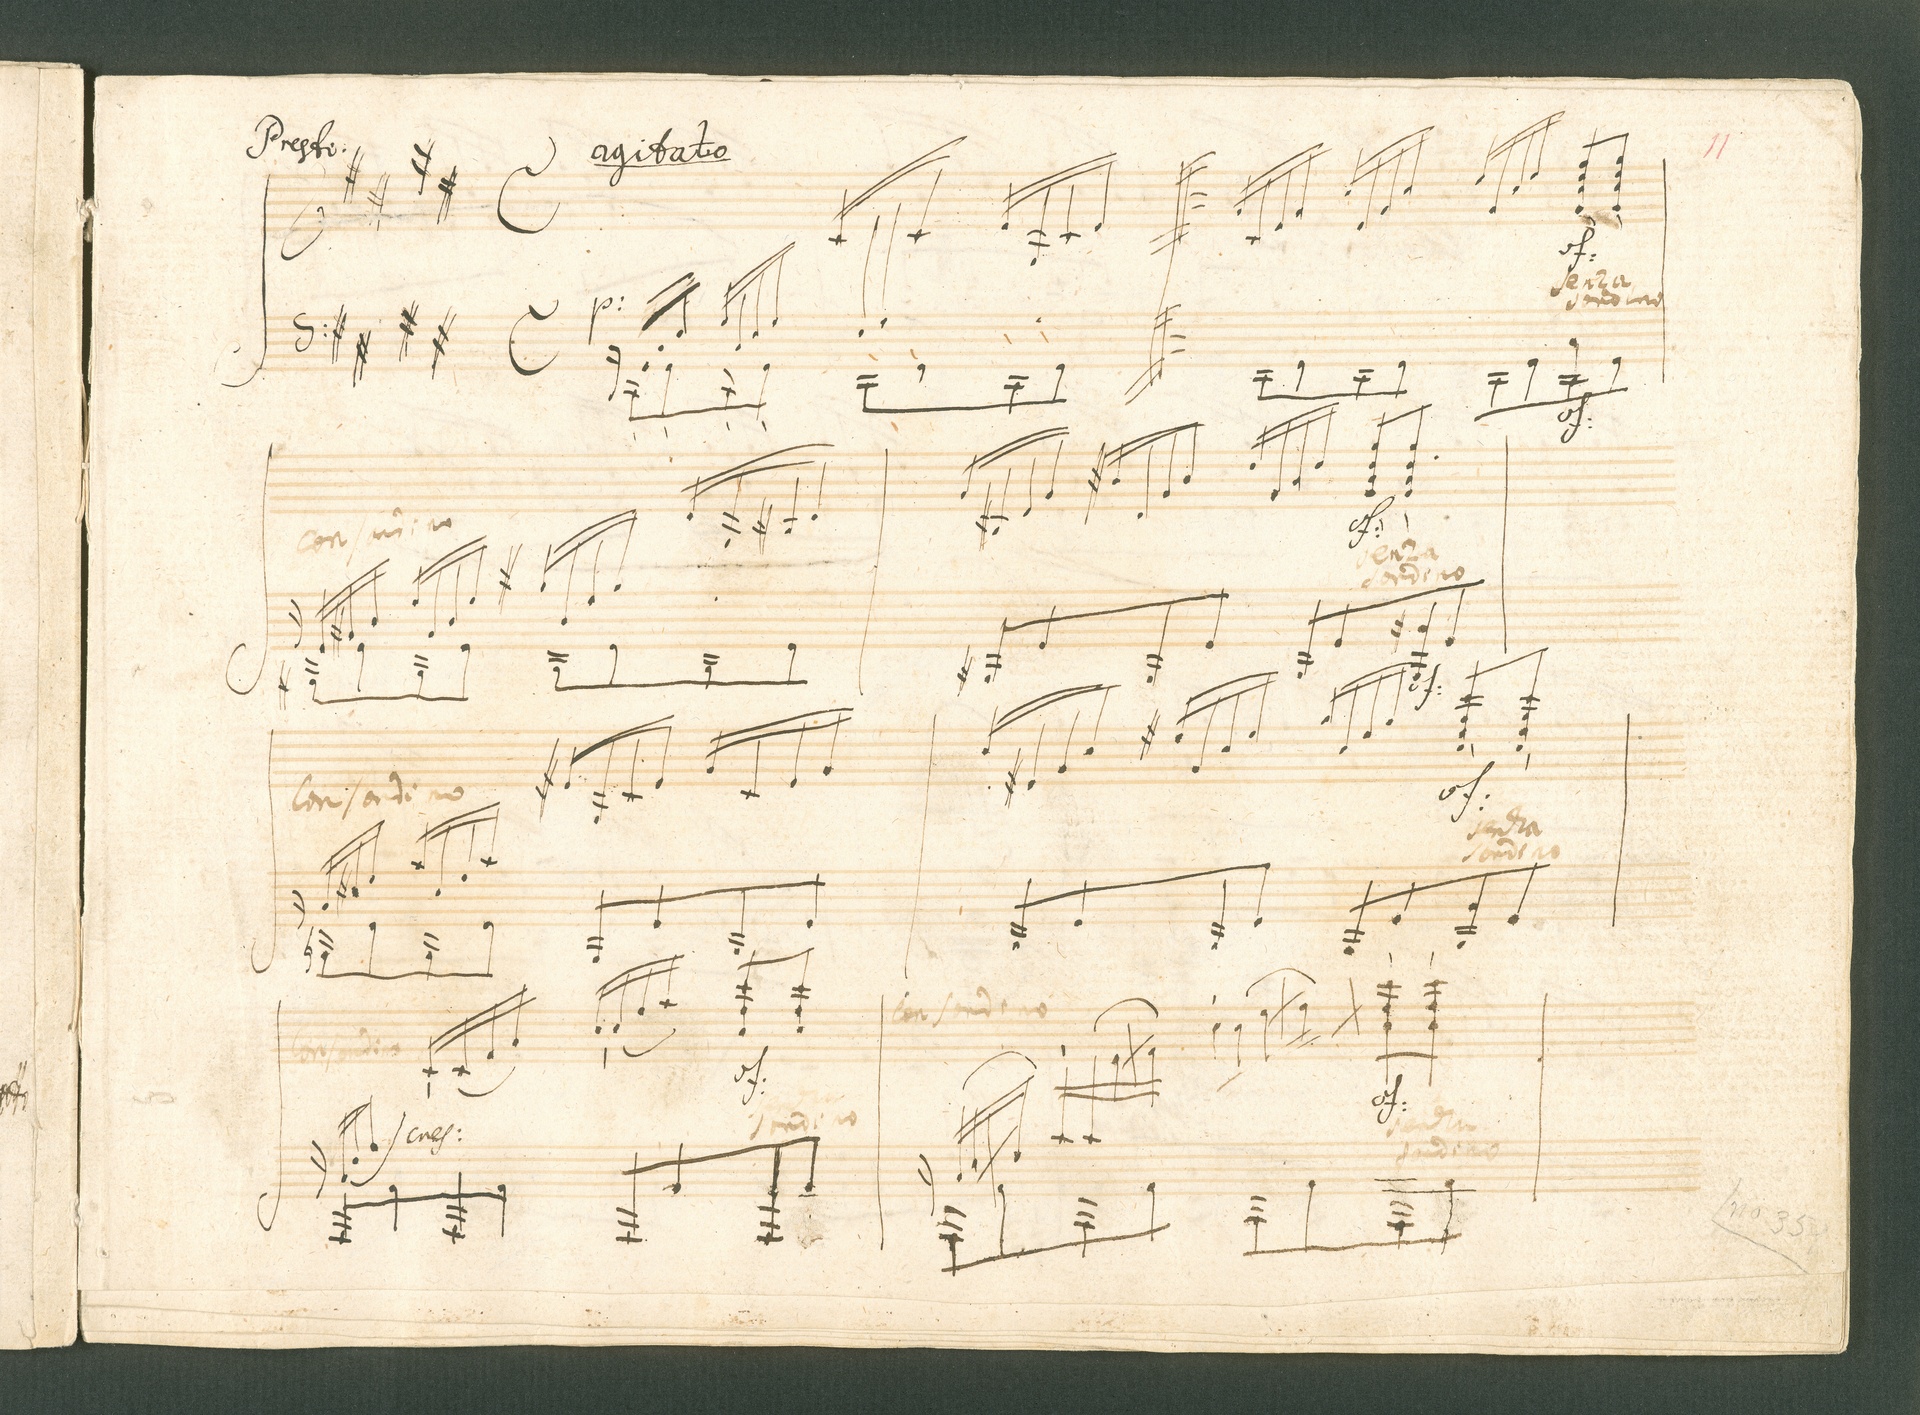 Presto. agitato
11
p:
sf:
senza
sordino
sf:
con sordino
sf:
senza
sordino
sf:
Con sordino
sf:
senza
sordino
con sordino
cresc:
sf:
sordino
con sordino
sf:
senza
sordino
no 35